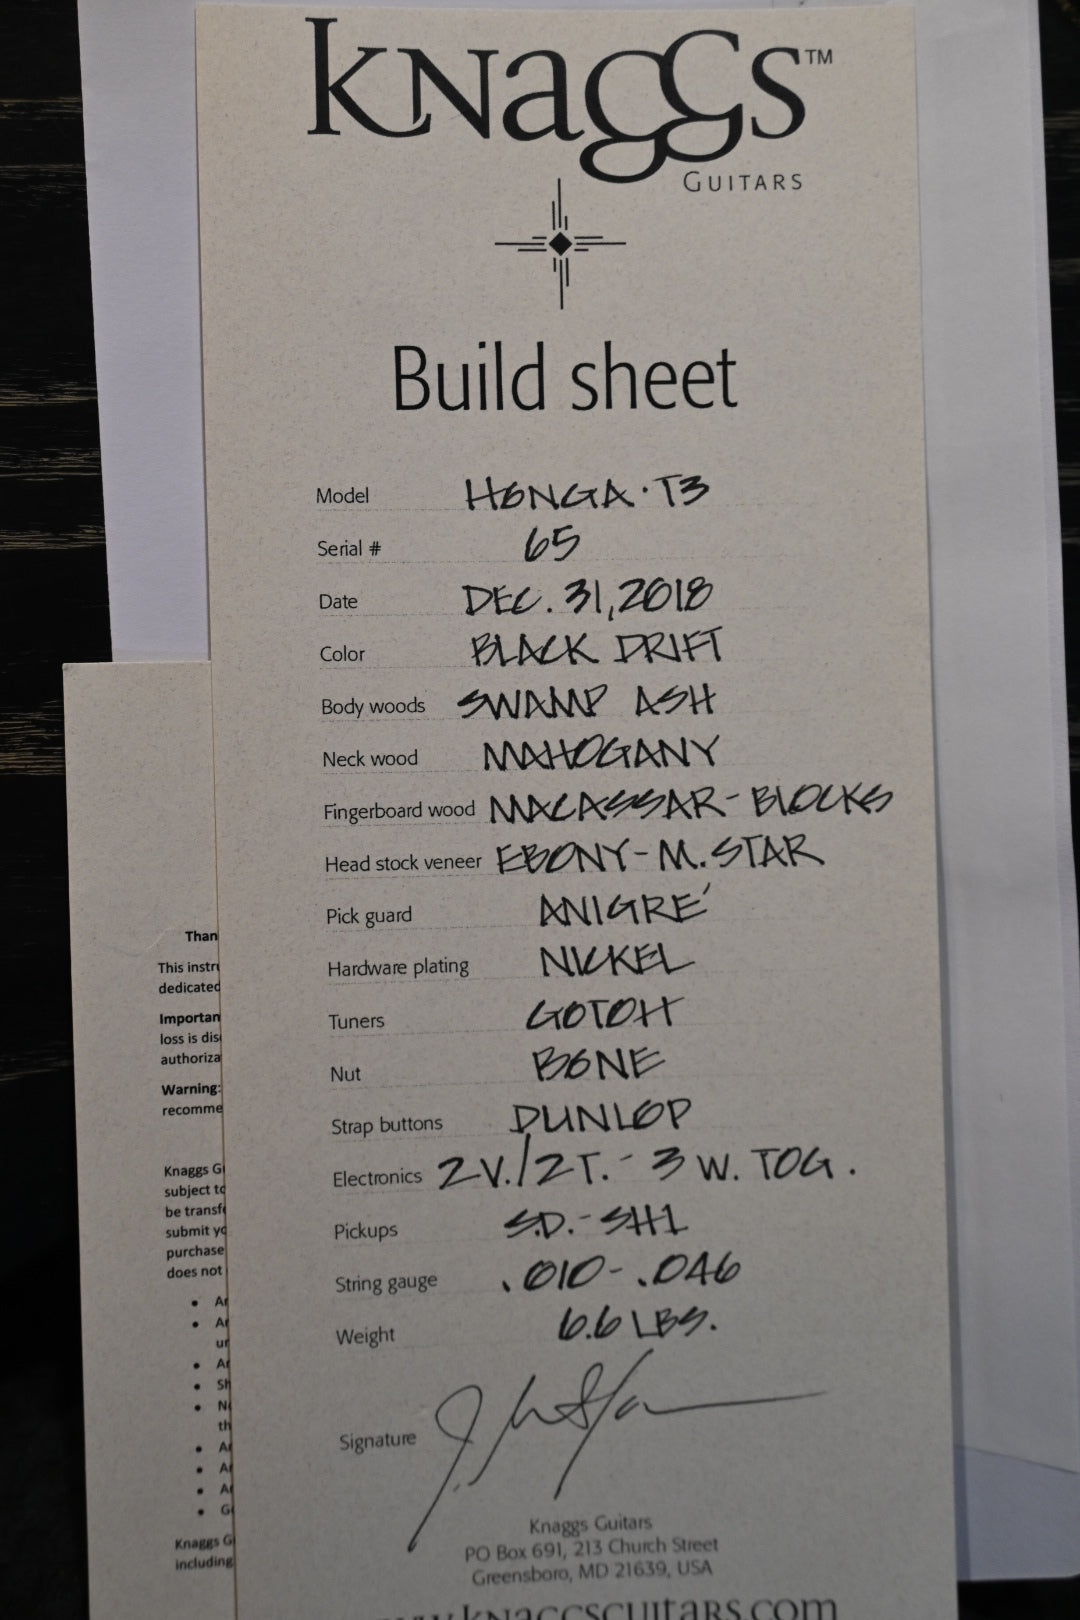 KNaGGS™
GUITARS
Build sheet
Model HONGA·T3
Serial # 65
Date DEC. 31, 2018
Color BLACK DRIFT
Body woods SWAMP ASH
Neck wood MAHOGANY
Fingerboard wood MACASSAR-BLOCKS
Head stock veneer EBONY-M. STAR
Pick guard ANIGRE´
Hardware plating NICKEL
Tuners GOTOH
Nut BONE
Strap buttons DUNLOP
Electronics 2V./2T.-3 W. TOG.
Pickups S.D.-SH1
String gauge .010-.046
Weight 6.6 LBS.
Signature
Knaggs Guitars
PO Box 691, 213 Church Street
Greensboro, MD 21639, USA
Than
This instr
dedicated
Importan
loss is dis
authoriza
Warning:
recomme
Knaggs G
subject to
be transf
submit yo
purchase
does not
• Ar
• Ar
ur
• Ar
• Sh
• N
th
• Ar
• Ar
• Ar
• G
Knaggs G
including